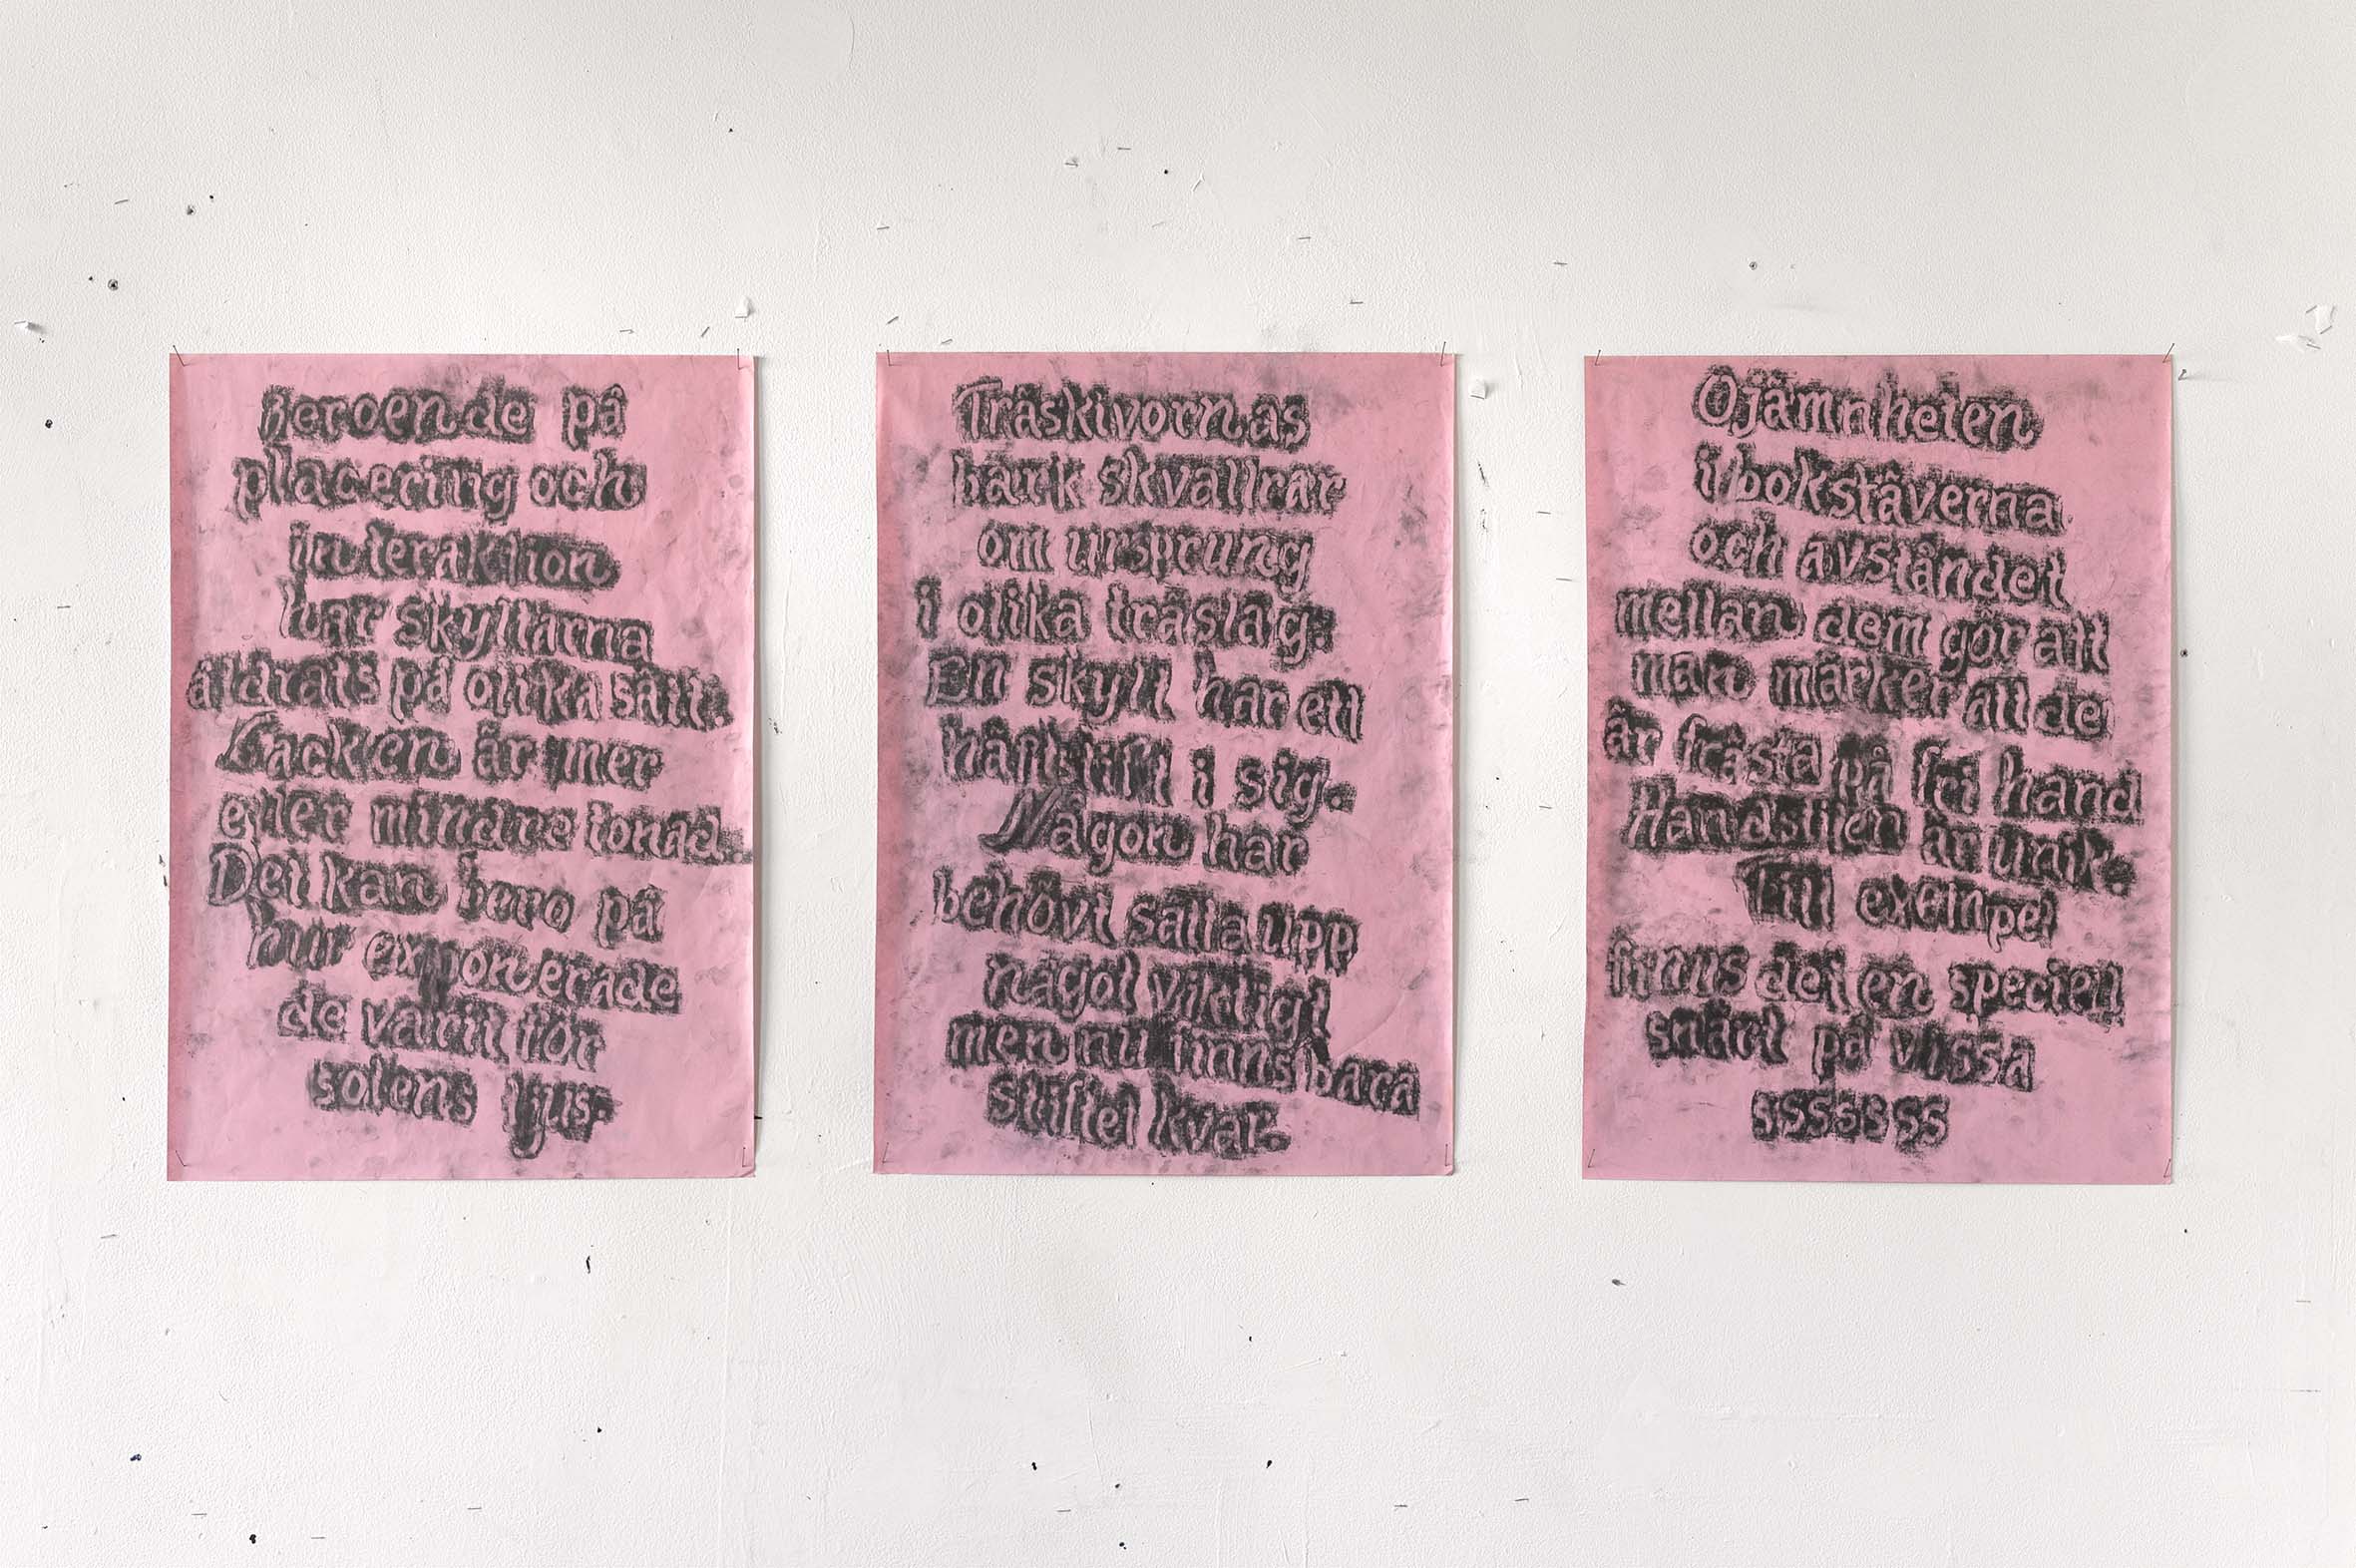 Beroende på
placering och
interaktion
har skyltarna
åldrats på olika sätt.
Lacken är mer
eller mindre tonad.
Det kan bero på
hur exponerade
de varit för
solens ljus.
Träskivornas
bark skvallrar
om ursprung
i olika träslag.
En skylt har ett
häftstift i sig.
Någon har
behövt sätta upp
något viktigt
men nu finns bara
stiftet kvar.
Ojämnheten
i bokstäverna
och avståndet
mellan dem gör att
man märker att de
är frästa på fri hand
Handstilen är unik.
Till exempel
finns det en speciell
snärt på vissa
sssssss